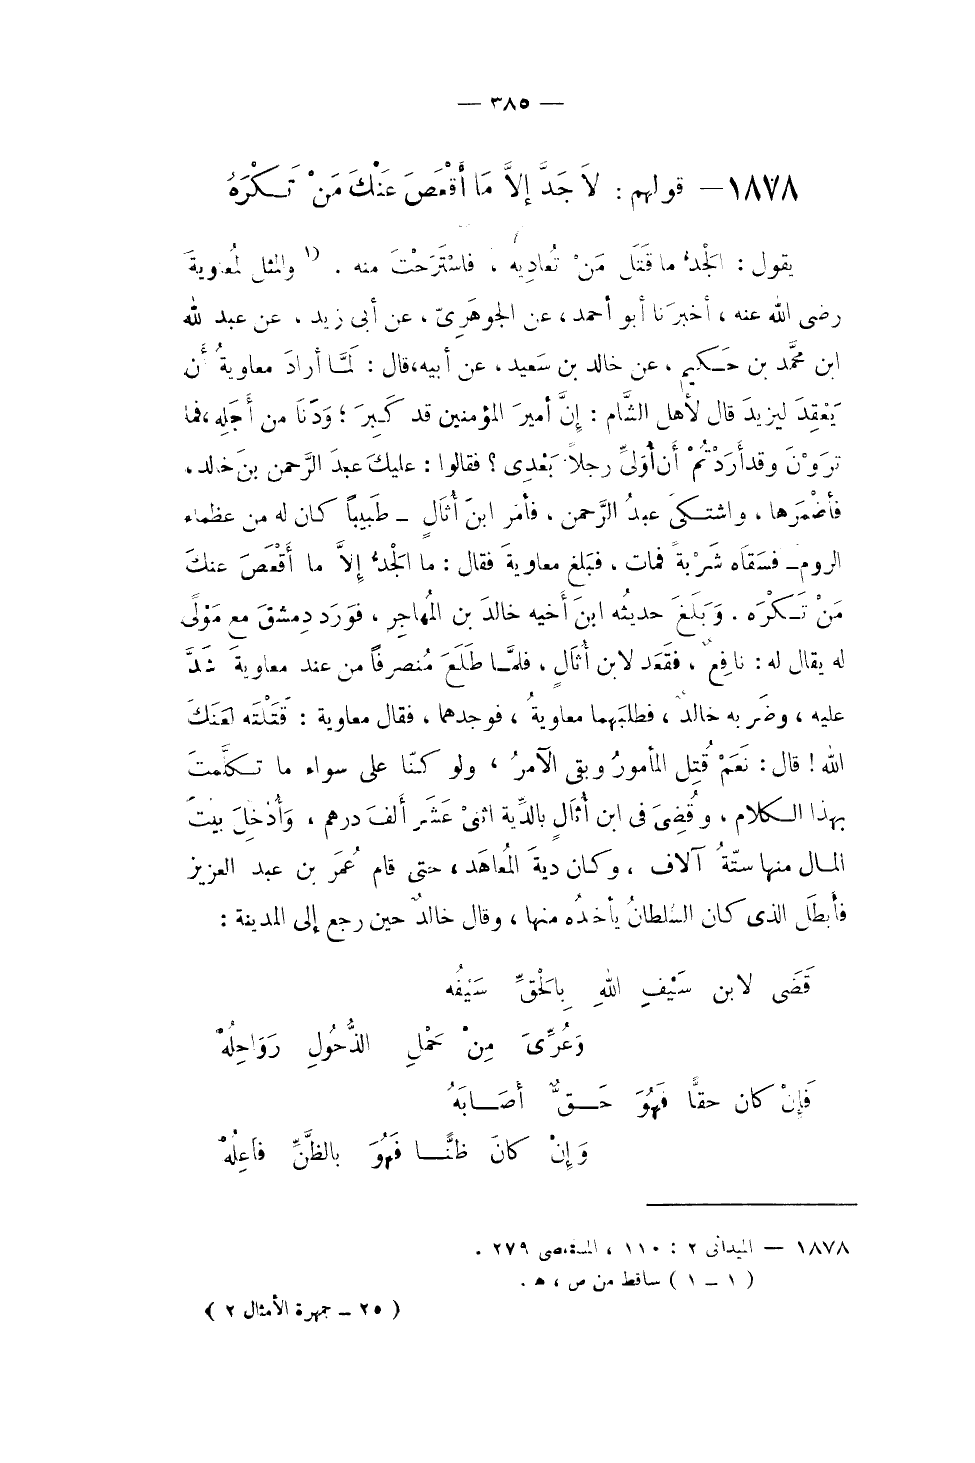 — ٣٨٥ —
١٨٧٨ – قولهم : لاَ جَدَّ إلاَّ مَا أَقْعَصَ عَنْكَ مَنْ تَكْرَهُ
يقول : الجْدُّ ما قَتَل مَنْ تُعادِيه ، فاسْتَرَحْتَ منه . (١ والمثل لمُعاوِيةَ
رضى الله عنه ، أخبرَنا أبو أحمد ، عن الجوهَرِىّ ، عن أبى زيد ، عن عبد لله
ابن محمَّد بن حَكيم ، عن خالد بن سَعيد ، عن أبيه،قال : لَمَّا أرادَ معاويةُ أن
يَعْقِدَ ليزيدَ قال لأهل الشَّام : إنَّ أميرَ المؤمنين قد كَبِرَ ؛ وَدَنَا من أَجَلِه ،فما
ترَوْنَ وقد أردْتُمْ أن أُوَلِّىَ رجلاً بَعْدِى ؟ فقالوا : عليكَ عبدَ الرَّحمن بنَ خالد ،
فأضْمَرها ، واشتكىَ عبدُ الرَّحمن ، فأمَر ابنَ أُثالٍ – طَبيباً كان له من عظماء
الروم– فسَقَاه شَرْبةً فمات ، فبَلغ معاويةَ فقال : ما الجَدُّ إلاَّ ما أَقْعَصَ عنكَ
مَنْ تَكْرَه . وَبَلَغَ حديثُه ابنَ أخيه خالدَ بن المُهاجِر ، فوَرَد دِمشقَ مع مَوْلًى
له يقال له : نافِعٌ ، فقَعَد لابن أُثَالٍ ، فلمَّا طَلَعَ مُنصرفاً من عند معاويةَ شَدَّ
عليه ، وضَربه خالدٌ ، فطلبَهما معاويةُ ، فوجدهما ، فقال معاوية : قَتَلْتَه لعَنَك
الله ! قال : نَعَمْ قُتِل المأمورُ وبقى الآمرُ ، ولو كنّا على سواء ما تكلَّمتَ
بهذا الكلام ، وقُضِىَ فى ابن أُثالٍ بالدِّية اثنىْ عَشَر ألفَ درهم ، وَأُدْخِلَ بيتَ
المال منها ستّةُ آلاف ، وكان ديةَ المُعاهَد ، حتى قام عُمَر بن عبد العزيز
فأبطَل الذى كان السُّلطانُ يأخذُه منها ، وقال خالدٌ حين رجع إلى المدينة :
قَضَى لابن سَيْفِ اللهِ بِالحَقِّ سَيْفُه
وَعُرِّىَ مِنْ حَمْلِ الذُّحُولِ رَوَاحِلُهْ
فَإِنْ كان حقًّا فَهْوَ حَقٌّ أصَابَهُ
وَإِنْ كانَ ظنًّا فَهْوَ بالظَّنِّ فاعِلُهْ
١٨٧٨ — الميدانى ٢ : ١١٠ ، المستقصى ٢٧٩ .
( ١ – ١ ) ساقط من ص ، ه .
( ٢٥ – جمهرة الأمثال ٢ )